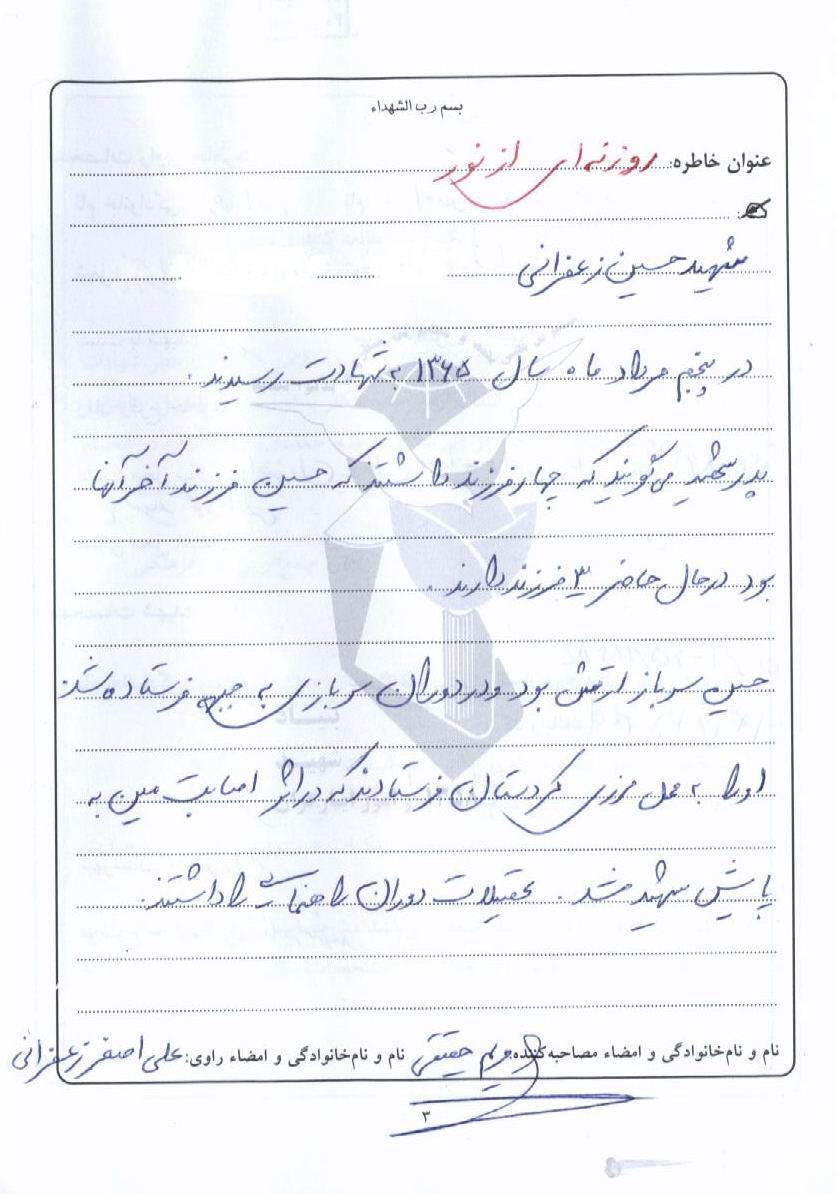 بسم رب الشهداء
عنوان خاطره: روزنه‌ای از نور
شهید حسین زعفرانی
در پنجم مرداد ماه سال ۱۳۶۵ به شهادت رسیدند.
پدر شهید می‌گویند که چهار فرزند داشتند که حسین فرزند آخر آنها
بود در حال حاضر ۳ فرزند دارند.
حسین سرباز ارتش بود و در دوران سربازی به جبهه فرستاده شد.
او را به محل مرزی کردستان فرستادند که در اثر اصابت مین به
پایش شهید شد. تحصیلات دوران راهنمایی را داشتند.
نام و نام‌خانوادگی و امضاء مصاحبه‌کننده: مریم حقیقی نام و نام‌خانوادگی و امضاء راوی: علی اصغر زعفرانی
۳